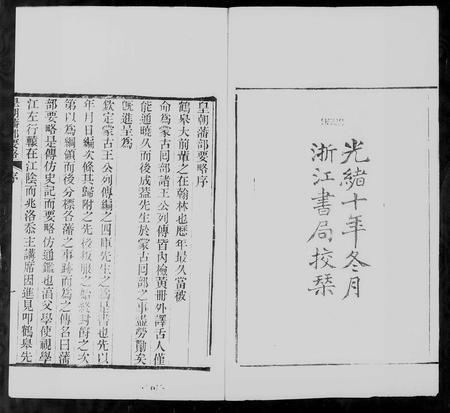 光緒十年冬月
浙江書局校栞
皇朝藩部要略序
鶴皋大前輩之在翰林也歷年最久當被
命爲蒙古回部諸王公列傳皆內檢黃冊外譯舌人僅
能通曉久而後成蓋先生於蒙古回部之事盡勞勩矣
旣進呈爲
欽定蒙古王公列傳編之四庫先生之爲是書也先以
年月日編次條其歸附之先後叛服之始終封爵之次
第以爲綱領而後分標各藩之事蹟而爲之傳名曰藩
部要略是傳仿史記而要略仿通鑑也湻父學使視學
江左行轅在江陰而兆洛忝主講席因進見叩鶴皋先
皇朝藩部要略 序 一